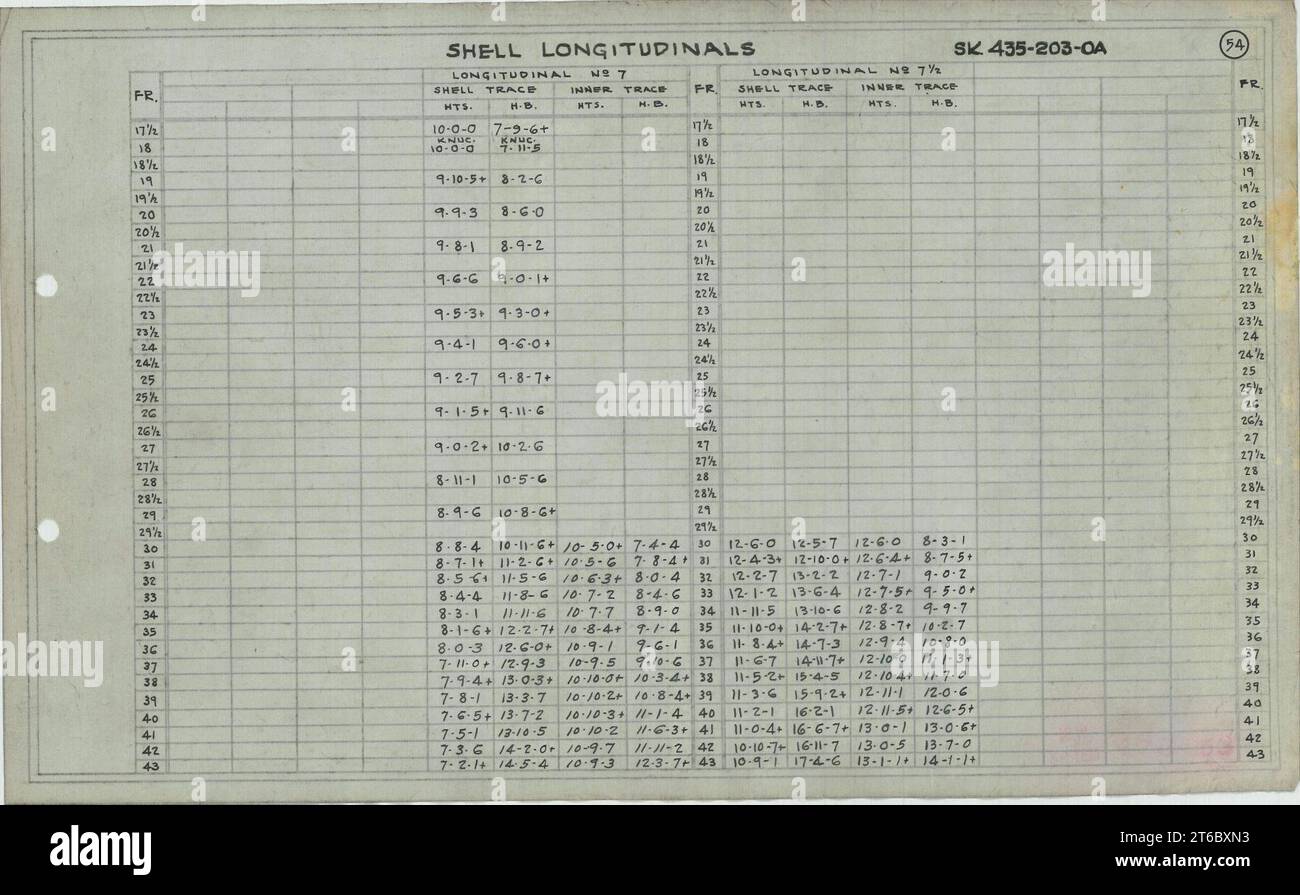 SHELL LONGITUDINALS SK 435-203-0A 54
LONGITUDINAL Nº 7 LONGITUDINAL Nº 7½
FR. SHELL TRACE INNER TRACE FR. SHELL TRACE INNER TRACE FR.
HTS. H.B. HTS. H.B. HTS. H.B. HTS. H.B.
17½ 10-0-0 7-9-6+ 17½ 17½
KNUC. KNUC.
18 10-0-0 7-11-5 18 18
18½ 18½ 18½
19 9-10-5+ 8-2-6 19 19
19½ 19½ 19½
20 9-9-3 8-6-0 20 20
20½ 20½ 20½
21 9-8-1 8-9-2 21 21
21½ 21½ 21½
22 9-6-6 9-0-1+ 22 22
22½ 22½ 22½
23 9-5-3+ 9-3-0+ 23 23
23½ 23½ 23½
24 9-4-1 9-6-0+ 24 24
24½ 24½ 24½
25 9-2-7 9-8-7+ 25 25
25½ 25½ 25½
26 9-1-5+ 9-11-6 26 26
26½ 26½ 26½
27 9-0-2+ 10-2-6 27 27
27½ 27½ 27½
28 8-11-1 10-5-6 28 28
28½ 28½ 28½
29 8-9-6 10-8-6+ 29 29
29½ 29½ 29½
30 8-8-4 10-11-6+ 10-5-0+ 7-4-4 30 12-6-0 12-5-7 12-6-0 8-3-1 30
31 8-7-1+ 11-2-6+ 10-5-6 7-8-4+ 31 12-4-3+ 12-10-0+ 12-6-4+ 8-7-5+ 31
32 8-5-6+ 11-5-6 10-6-3+ 8-0-4 32 12-2-7 13-2-2 12-7-1 9-0-2 32
33 8-4-4 11-8-6 10-7-2 8-4-6 33 12-1-2 13-6-4 12-7-5+ 9-5-0+ 33
34 8-3-1 11-11-6 10-7-7 8-9-0 34 11-11-5 13-10-6 12-8-2 9-9-7 34
35 8-1-6+ 12-2-7+ 10-8-4+ 9-1-4 35 11-10-0+ 14-2-7+ 12-8-7+ 10-2-7 35
36 8-0-3 12-6-0+ 10-9-1 9-6-1 36 11-8-4+ 14-7-3 12-9-4 10-8-0 36
37 7-11-0+ 12-9-3 10-9-5 9-10-6 37 11-6-7 14-11-7+ 12-10-0 11-1-3+ 37
38 7-9-4+ 13-0-3+ 10-10-0+ 10-3-4+ 38 11-5-2+ 15-4-5 12-10-4+ 11-7-0 38
39 7-8-1 13-3-7 10-10-2+ 10-8-4+ 39 11-3-6 15-9-2+ 12-11-1 12-0-6 39
40 7-6-5+ 13-7-2 10-10-3+ 11-1-4 40 11-2-1 16-2-1 12-11-5+ 12-6-5+ 40
41 7-5-1 13-10-5 10-10-2 11-6-3+ 41 11-0-4+ 16-6-7+ 13-0-1 13-0-6+ 41
42 7-3-6 14-2-0+ 10-9-7 11-11-2 42 10-10-7+ 16-11-7 13-0-5 13-7-0 42
43 7-2-1+ 14-5-4 10-9-3 12-3-7+ 43 10-9-1 17-4-6 13-1-1+ 14-1-1+ 43
alamy
alamy
alamy
alamy
alamy
alamy
Image ID: 2T6BXN3
www.alamy.com